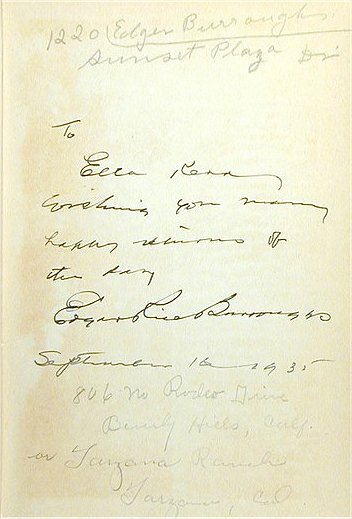 1220 (Edgar Burroughs.
Sunset Plaza Dr
To
Ella Kerr
Wishing you many
happy returns of
the day
Edgar Rice Burroughs
September 16 1935
806 No Rodeo Drive
Beverly Hills, Calif.
or Tarzana Ranch
Tarzana, Cal.